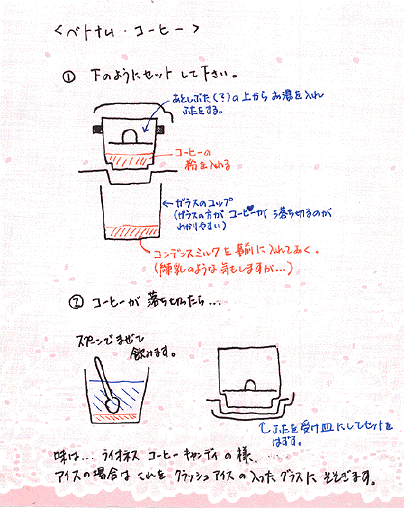 <ベトナム・コーヒー>
① 下のようにセットして下さい。
おとしぶた(?)の上からお湯を入れ
ふたをする。
コーヒーの
粉を入れる
ガラスのコップ
(ガラスの方がコーヒーが落ち切るのが
わかりやすい)
コンデンスミルクを事前に入れておく。
(練乳のような気もしますが…)
② コーヒーが落ち切ったら…
スプーンでまぜて
飲みます。
ふたを受け皿にしてセットを
はずす。
味は… ライオネスコーヒーキャンディの様、…
アイスの場合はこれをクラッシュアイスの入ったグラスにそそぎます。